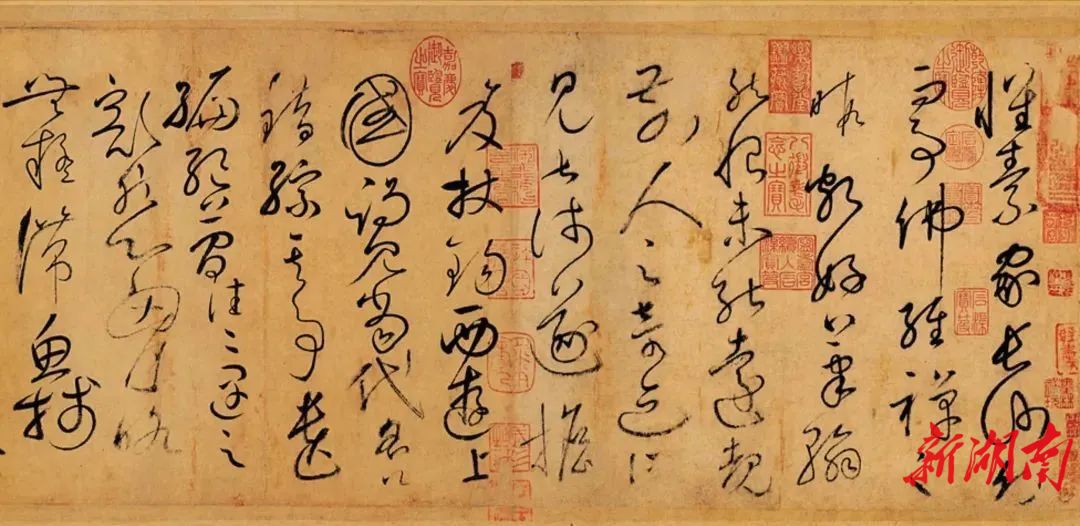 懷素家長沙幼而
事佛經禪之
暇頗好筆翰
然恨未能遠覩
前人之奇迹所
見甚淺遂擔
笈杖錫西遊上
國謁見當代名公
錯綜其事遺
編絕簡往往遇之
豁然心胸略
無疑滯魚牋
嘉慶御覽之寶
新湖南